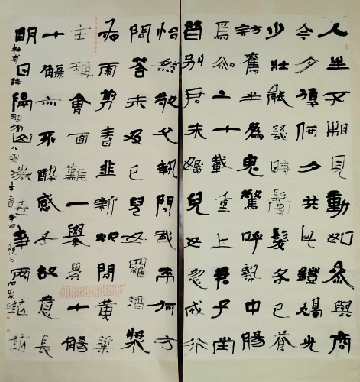 人生不相見動如參與商
今夕復何夕共此燈燭光
少壯能幾時鬢髮各已蒼
訪舊半為鬼驚呼熱中腸
焉知二十載重上君子堂
昔別君未婚兒女忽成行
怡然敬父執問我來何方
問答未及已兒女羅酒漿
夜雨剪春韭新炊間黃粱
主稱會面難一舉累十觴
十觴亦不醉感子故意長
明日隔山岳世事兩茫茫